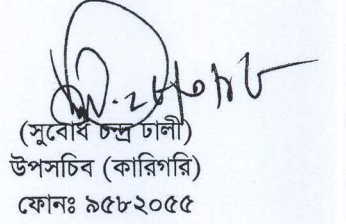 (সুবোধ চন্দ্র ঢালী)
উপসচিব (কারিগরি)
ফোনঃ ৯৫৮২০৫৫